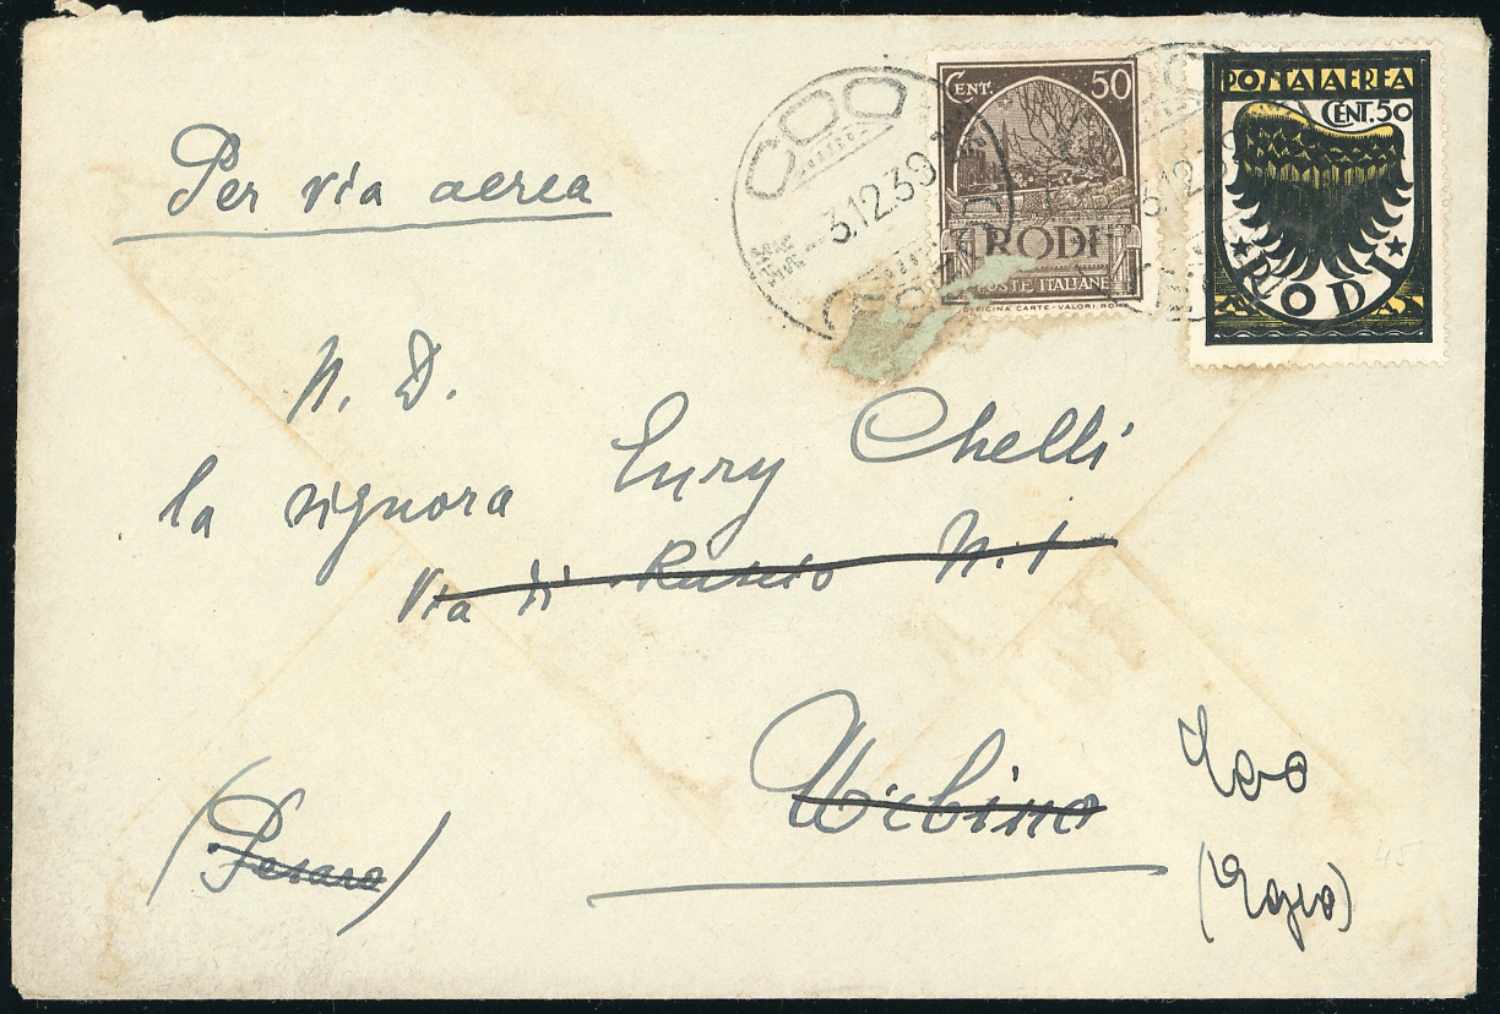 COO
3.12.39
CENT. 50
RODI
POSTE ITALIANE
OFFICINA CARTE-VALORI, ROMA
POSTA AEREA
CENT. 50
RODI
3.12.39
Per via aerea
N. D.
la signora Eury Chelli
Via di N. 1
Urbino
(Pesaro)
Coo
(Egeo)
45